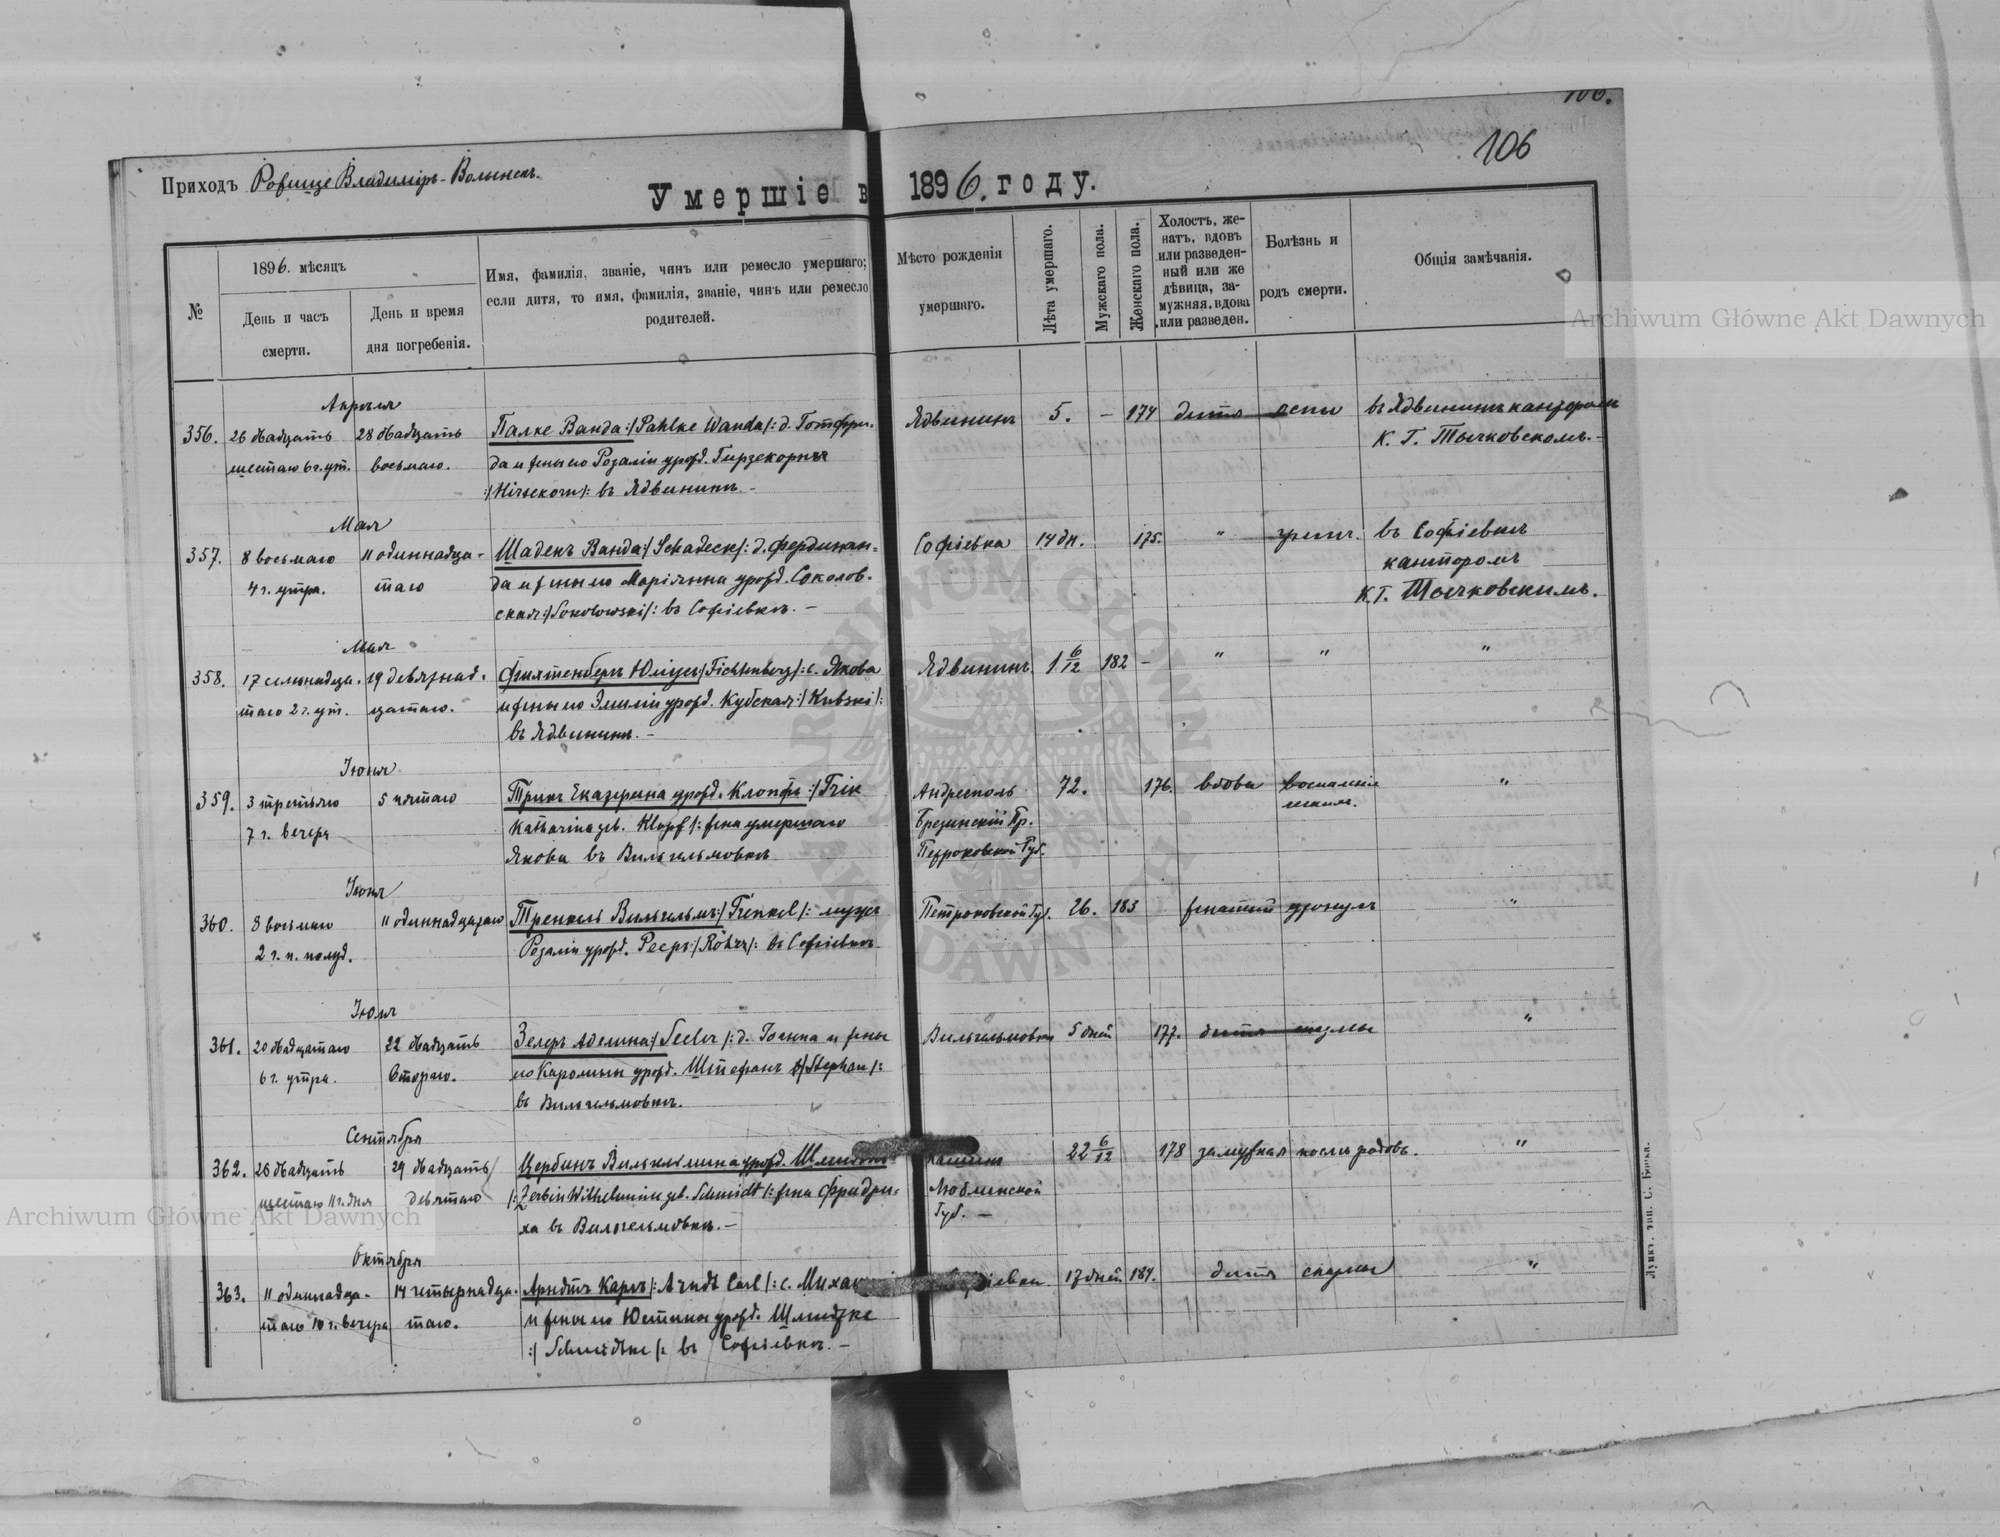 106.
106
Приходъ Рофище Владиміръ-Волынск.
Умершіе в 1896. году.
№
1896. мѣсяцъ
День и часъ смерти.
День и время дня погребенія.
Имя, фамилія, званіе, чинъ или ремесло умершаго;
если дитя, то имя, фамилія, званіе, чинъ или ремесло
родителей.
Мѣсто рожденія
умершаго.
Лѣта умершаго.
Мужскаго пола.
Женскаго пола.
Холостъ, же-
натъ, вдовъ
или разведен-
ный или же
дѣвица, за-
мужняя, вдова
или разведен.
Болѣзнь и
родъ смерти.
Общія замѣчанія.
Апрѣля
356. 26 двадцать 28 двадцать Палке Ванда :/Pahlke Wanda/: д. Готфри- Ядвининъ 5. – 174 дитя оспы въ Ядвининѣ канторомъ
шестаго 6 ч. ут. восьмаго. да и жены его Розаліи урожд. Гирзекорнъ К. Г. Тычковскомъ.-
:/Hirsekorn/: въ Ядвининѣ. -
Мая
357. 8 восьмаго 11 одиннадца- Шадекъ Ванда :/Schadeck/: д. Фердинан- Софіевка 14 дн. 175. " грип. въ Софіевкѣ
4 ч. утра. таго да и жены его Маріянна урожд. Соколов- канторомъ
ская :/Sokolowski/: въ Софіевкѣ. – К.Г. Тычковскимъ.
Мая
358. 17 семнадца- 19 девятнад- Фихтенбергъ Юліусъ /Fichtenberg/: с. Якова Ядвининъ 1 6/12 182 – " " "
таго 2 ч. ут. цатаго. и жены его Эмиліи урожд. Кубская :/Kubski/:
въ Ядвининѣ. -
Іюня
359. 3 третьяго 5 пятаго Трикъ Екатерина урожд. Клопфъ :/Trik Андресполь 72. 176. вдова воспаленіе "
7 ч. вечера Katharina geb. Klopf/: жена умершаго Брезинскій Пр.
Якова въ Вильгельмовкѣ Петроковской Губ.
Іюня
360. 8 восьмаго 11 одиннадцатаго Тренкель Вильгельмъ :/Trenkel/: мужъ Петроковской Губ. 26. 183 женатый утонулъ "
2 ч. п. полуд. Розаліи урожд. Рееръ :/Röhr/: въ Софіевкѣ
Іюля
361. 20 двадцатаго 22 двадцать Зелеръ Аделина :/Seeler/: д. Іоанна и жены Вильгельмовка 5 дней 177. дитя "
6 ч. утра. втораго. его Каролины урожд. Штефанъ :/Stephan/:
въ Вильгельмовкѣ.
Сентября
362. 26 двадцать 29 двадцать Цербинъ Вильгельмина урожд. Шмидтъ 22 6/12 178 замужняя послѣ родовъ. "
шестаго 11 ч. дня девятаго /: Zerbin Wilhelmine geb. Schmidt/: жена Фридри- Люблинской
ха въ Вильгельмовкѣ. – Губ. –
Октября
363. 11 одиннадца- 14 четырнадца- Арндтъ Карлъ /: Arndt Carl /: с. 17 дней 184. дитя "
таго 10 ч. вечера таго. и жены его Юстины урожд. Шмидтке
:/ Schmidtke /: въ Софіевкѣ. –
Луцкъ. тип. С. Бонка.
Archiwum Główne Akt Dawnych
Archiwum Główne Akt Dawnych
ARCHIWUM GŁÓWNE AKT DAWNYCH